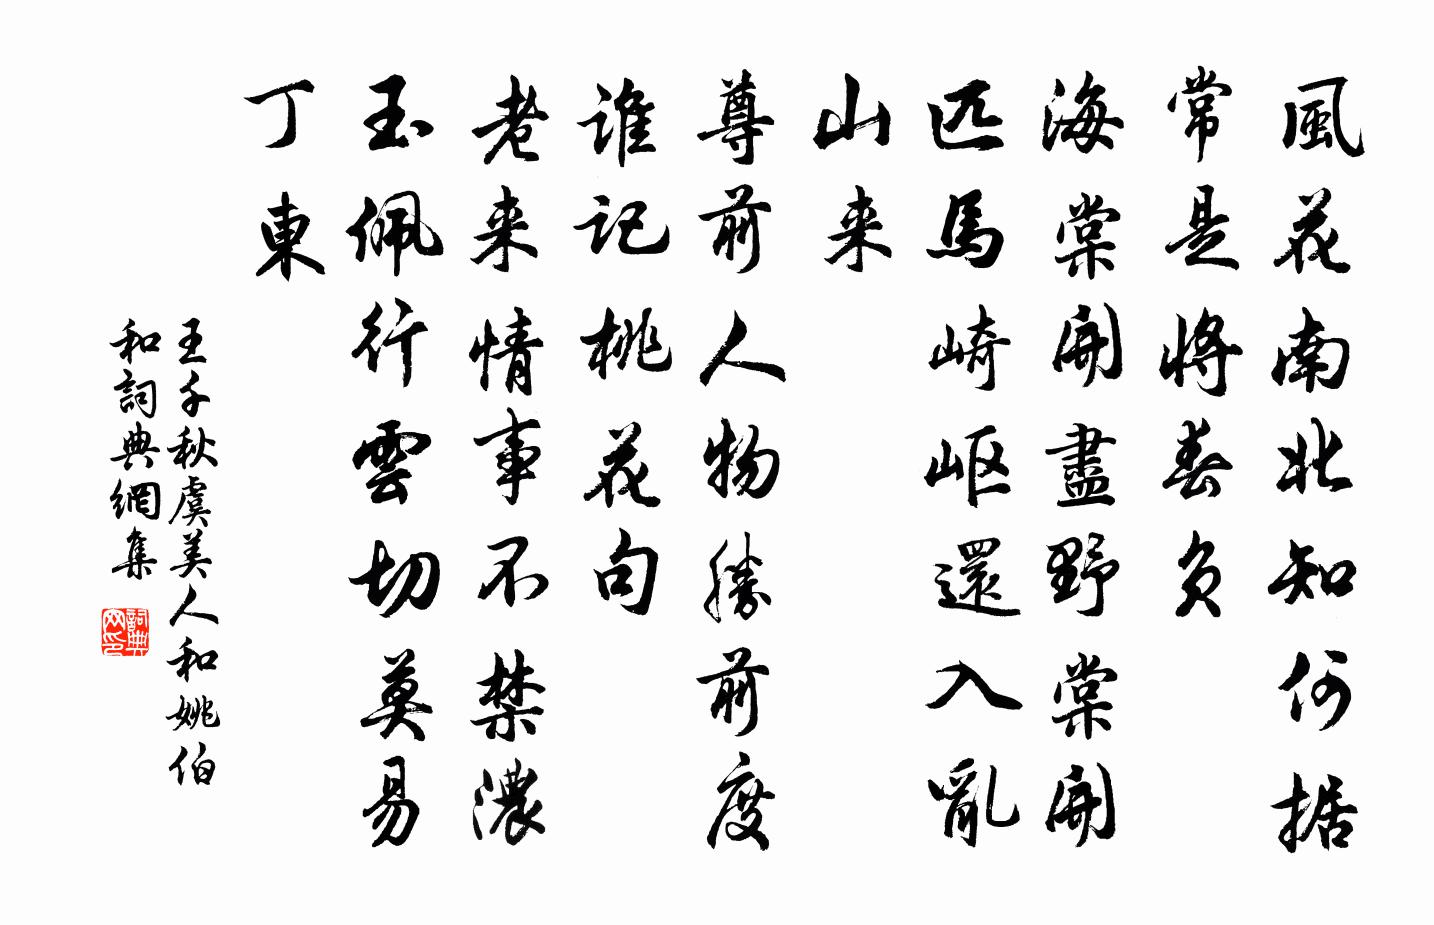 風花南北知何据
常是將春負
海棠開盡野棠開
匹馬崎岖還入亂
山来
尊前人物勝前度
誰記桃花句
老来情事不禁濃
玉佩行雲切莫易
丁東
王千秋虞美人和姚伯
和詞典網集
詞典
网印